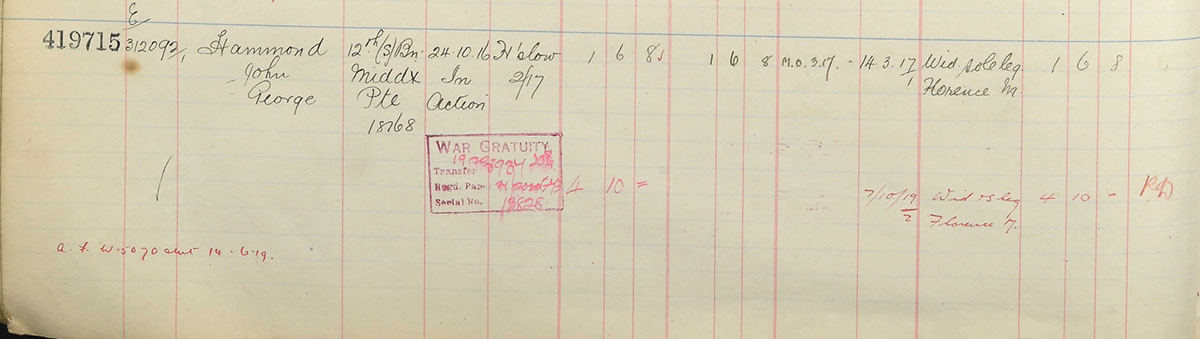 E
419715 312092, Hammond 12th (S) Bn 24.10.16 H'slow 1 6 8 1 6 8 M.O. 3.17. - 14 3. 17 Wid. sole leg. 1 6 8
John Middx In 2/17 1 Florence M.
George Pte Action
18768
WAR GRATUITY
Transfer
Regd. Paper 4 10 = 7/10/19 Wid & s leg 4 10 -
Serial No. 13828 2 Florence M.
a. f. W. 5070 14.6.19.